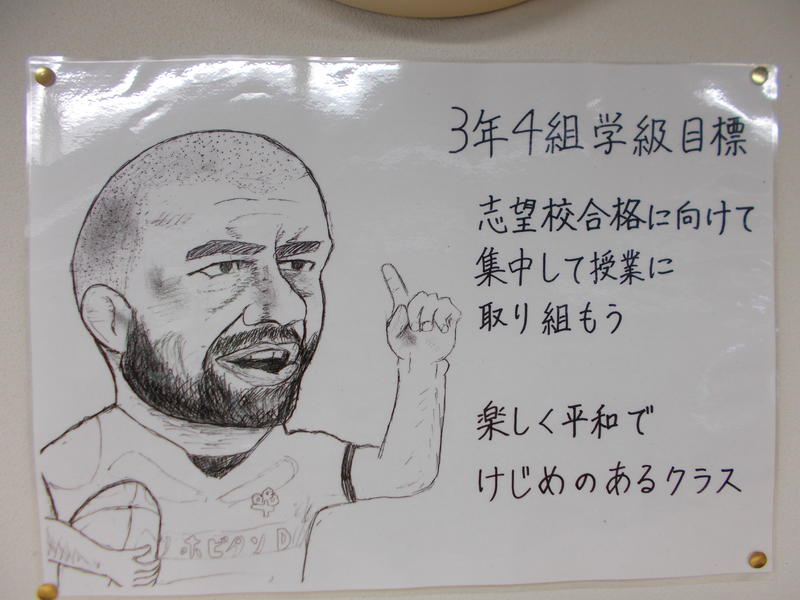 3年4組学級目標
志望校合格に向けて
集中して授業に
取り組もう
楽しく平和で
けじめのあるクラス
リポビタンD